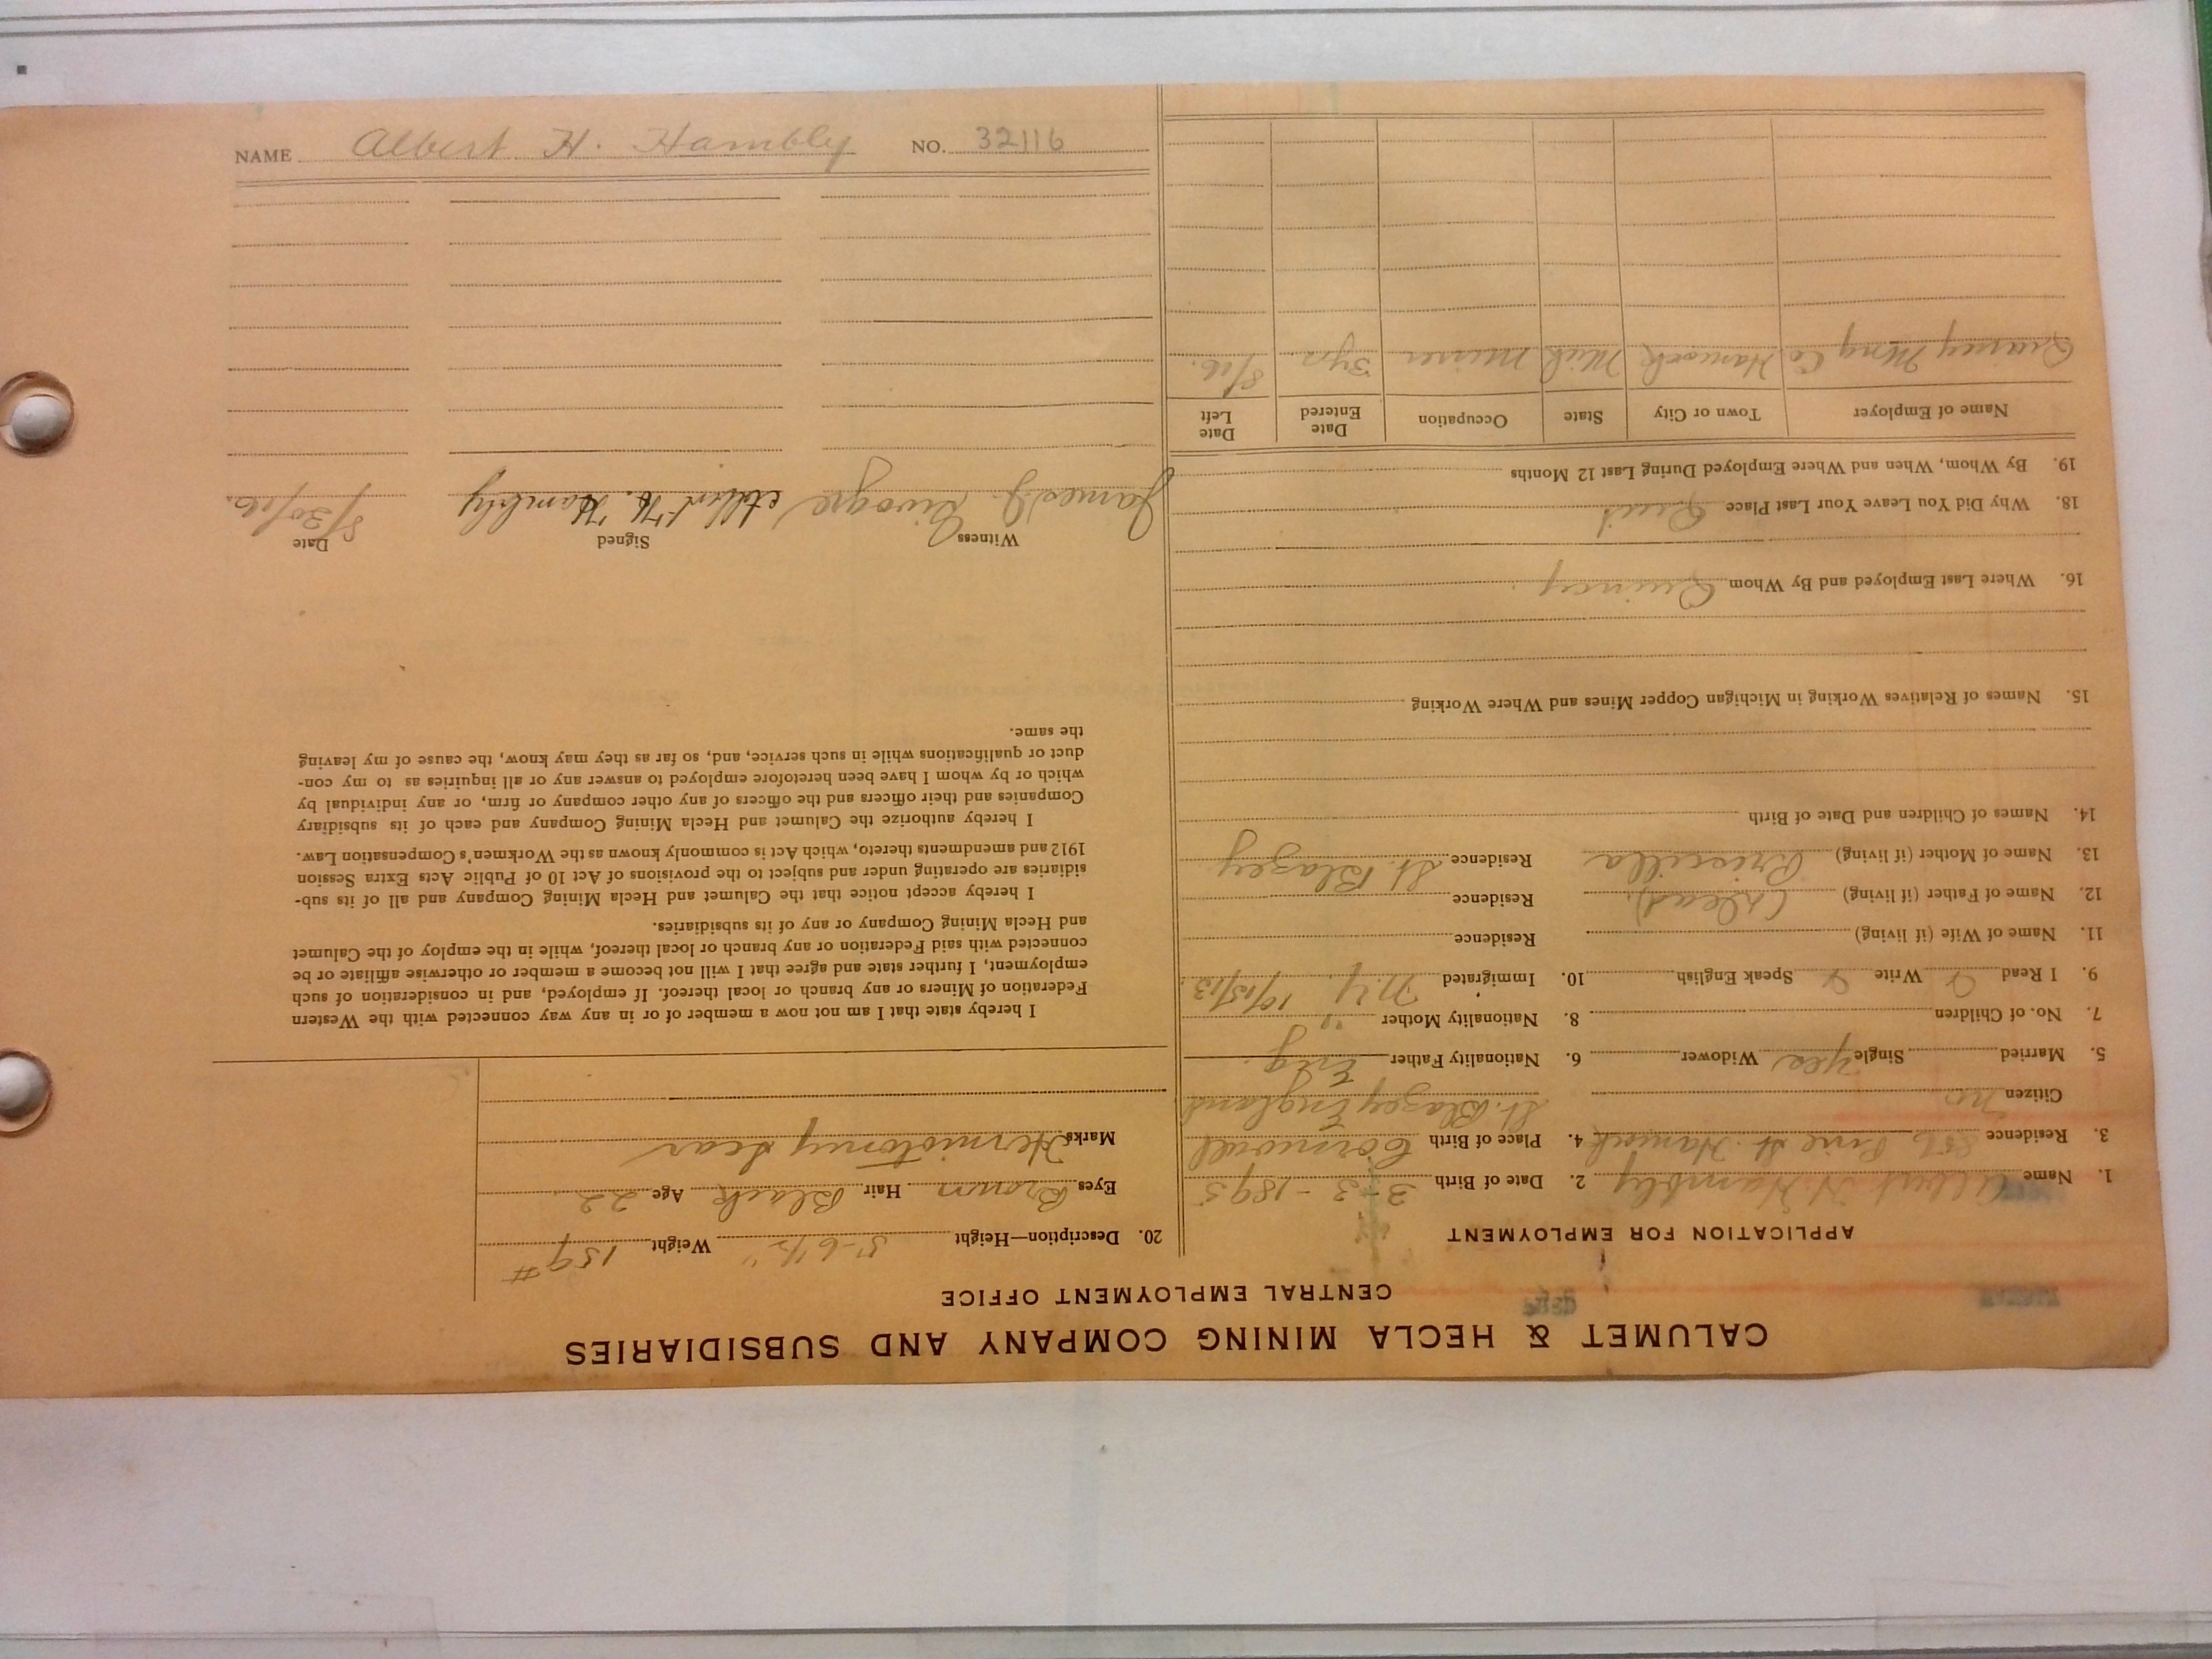 CALUMET & HECLA MINING COMPANY AND SUBSIDIARIES
CENTRAL EMPLOYMENT OFFICE
APPLICATION FOR EMPLOYMENT
1. Name Albert H. Hambly 2. Date of Birth 3-3-1895
3. Residence Pine St. Hancock 4. Place of Birth Cornwall
Citizen no St. Blazey England
5. Married Single yes Widower 6. Nationality Father Eng.
7. No. of Children 8. Nationality Mother "
9. I Read Write Speak English 10. Immigrated N.Y. 10/15/13.
11. Name of Wife (if living) Residence
12. Name of Father (if living) (dead) Residence
13. Name of Mother (if living) Priscilla Residence St. Blazey
14. Names of Children and Date of Birth
15. Names of Relatives Working in Michigan Copper Mines and Where Working
16. Where Last Employed and By Whom Quincy
18. Why Did You Leave Your Last Place Quit
19. By Whom, When and Where Employed During Last 12 Months
Name of Employer Town or City State Occupation Date Entered Date Left
Quincy Mng Co Hancock Mich Miner 3 yrs 8/16.
20. Description—Height 5-6 1/2" Weight 159#
Eyes Brown Hair Black Age 22
Marks Scar
I hereby state that I am not now a member of or in any way connected with the Western
Federation of Miners or any branch or local thereof. If employed, and in consideration of such
employment, I further state and agree that I will not become a member or otherwise affiliate or be
connected with said Federation or any branch or local thereof, while in the employ of the Calumet
and Hecla Mining Company or any of its subsidiaries.
I hereby accept notice that the Calumet and Hecla Mining Company and all of its sub-
sidiaries are operating under and subject to the provisions of Act 10 of Public Acts Extra Session
1912 and amendments thereto, which Act is commonly known as the Workmen's Compensation Law.
I hereby authorize the Calumet and Hecla Mining Company and each of its subsidiary
Companies and their officers and the officers of any other company or firm, or any individual by
which or by whom I have been heretofore employed to answer any or all inquiries as to my con-
duct or qualifications while in such service, and, so far as they may know, the cause of my leaving
the same.
Witness Signed Date
James J. Albert H. Hambly 8/30/16.
NAME Albert H. Hambly NO. 32116